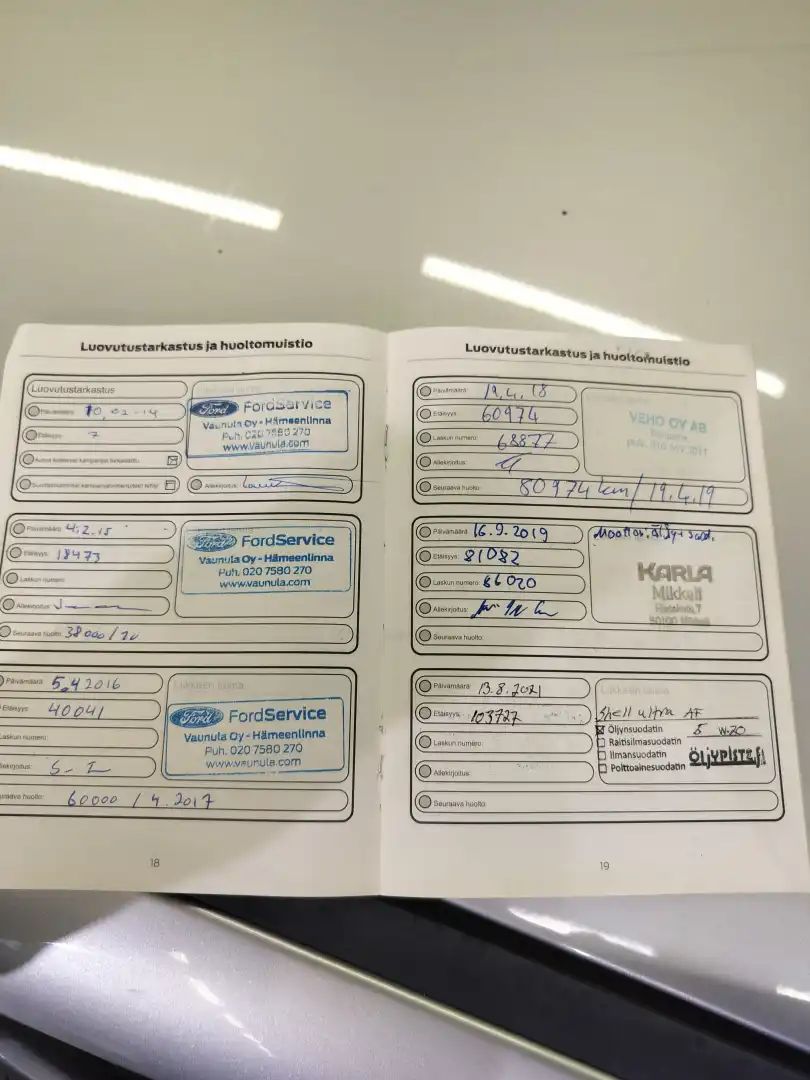 Luovutustarkastus ja huoltomuistio
Luovutustarkastus
Päivämäärä: 10.02-14
Etäisyys: 7
Allekirjoitus:
Ford FordService
Vaunula Oy - Hämeenlinna
Puh. 020 7580 270
www.vaunula.com
Päivämäärä: 4.2.15
Etäisyys: 18473
Laskun numero:
Allekirjoitus:
Seuraava huolto: 38000 /
Ford FordService
Vaunula Oy - Hämeenlinna
Puh. 020 7580 270
www.vaunula.com
Päivämäärä: 5.4 2016
Etäisyys: 40041
Laskun numero:
Seuraava huolto: 60000 / 4.2017
Liikkeen leima
Ford FordService
Vaunula Oy - Hämeenlinna
Puh. 020 7580 270
www.vaunula.com
18
Luovutustarkastus ja huoltomuistio
Päivämäärä: 19.4.18
Etäisyys: 60974
Laskun numero: 68877
Allekirjoitus:
Seuraava huolto: 80974 km / 19.4.19
VEHO OY AB
Päivämäärä: 16.9.2019
Etäisyys: 81082
Laskun numero: 66020
Allekirjoitus:
Seuraava huolto:
KARLA
Mikkeli
Päivämäärä: 13.8.2021
Etäisyys: 103727
Laskun numero:
Allekirjoitus:
Seuraava huolto:
Liikkeen leima
Shell ultra AF
Öljynsuodatin 5 W-20
Raitisilmasuodatin
Ilmansuodatin
Polttoainesuodatin
ÖLJYPISTE.fi
19